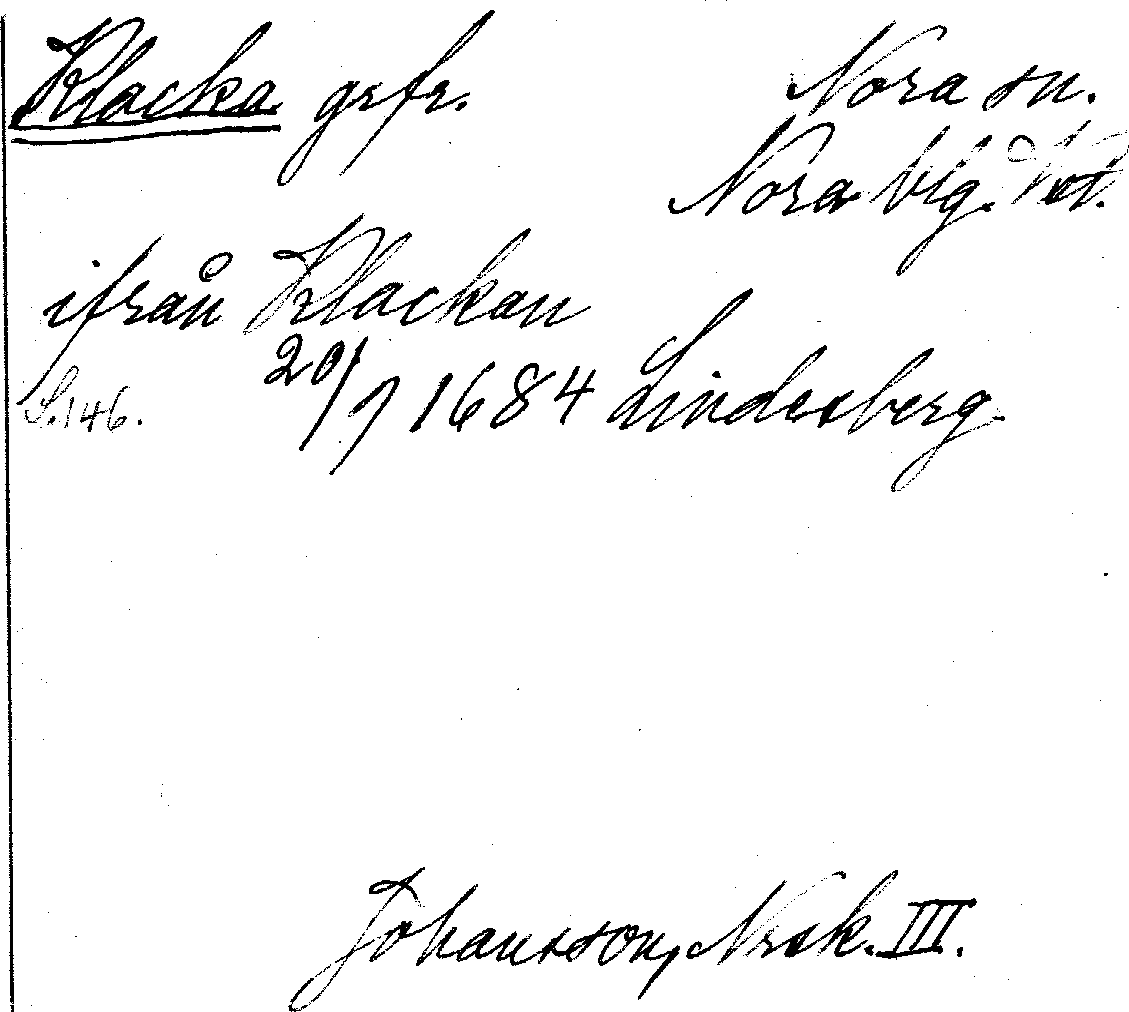 Klacka grfr. Nora sn.
Nora blg. Vst.
ifrån Klackan
S. 146. 20/7 1684 Lindesberg.
Johansson, Nrsk. III.